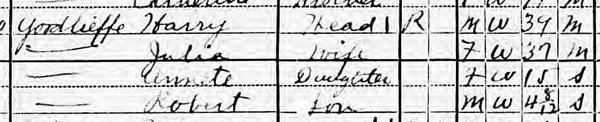 Yordheffe Harry Head 1 R M W 39 M
— Julia Wife F W 37 M
— Annete Daughter F W 15 S
— Robert Son M W 4 8/12 S